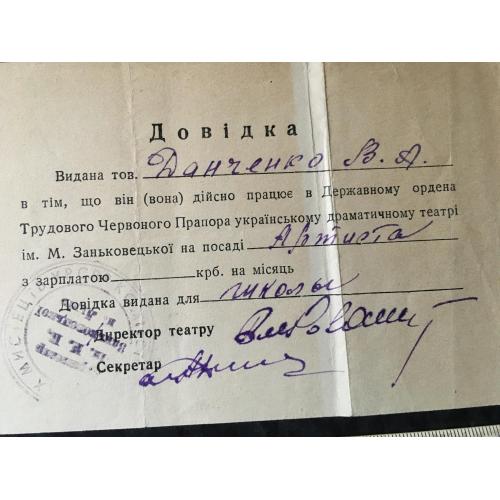 Довідка
Видана тов. Данченко В. А.
в тім, що він (вона) дійсно працює в Державному ордена
Трудового Червоного Прапора українському драматичному театрі
ім. М. Заньковецької на посаді Артиста
з зарплатою крб. на місяць
Довідка видана для школы
Директор театру
Секретар